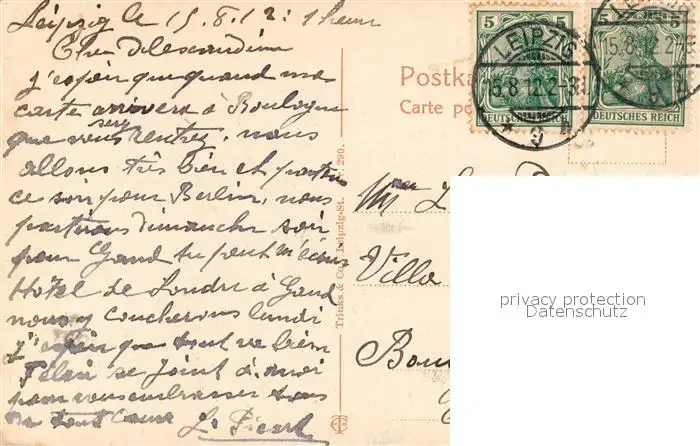 Leipzig le 15.8.12: 1 heure
j'espère que quand ma
carte arrivera à Boulogne
que vous serez rentrez, nous
allons très bien et partons
ce soir pour Berlin, nous
partirons dimanche soir
pour Gand tu peut m'écrire
Hôtel de Londre à Gand
nous y coucherons lundi
j'espère que tout va bien
se joint à moi
pour vous embrasser tous
de tout cœur
Le Picard
Postka
Carte po
Trinks & Co. Leipzig-St. 290.
5 5
LEIPZIG
15.8.12.2-3N
9
DEUTSCHES REICH
5 5
15.8. 2
DEUTSCHES REICH
Villa
privacy protection
Datenschutz